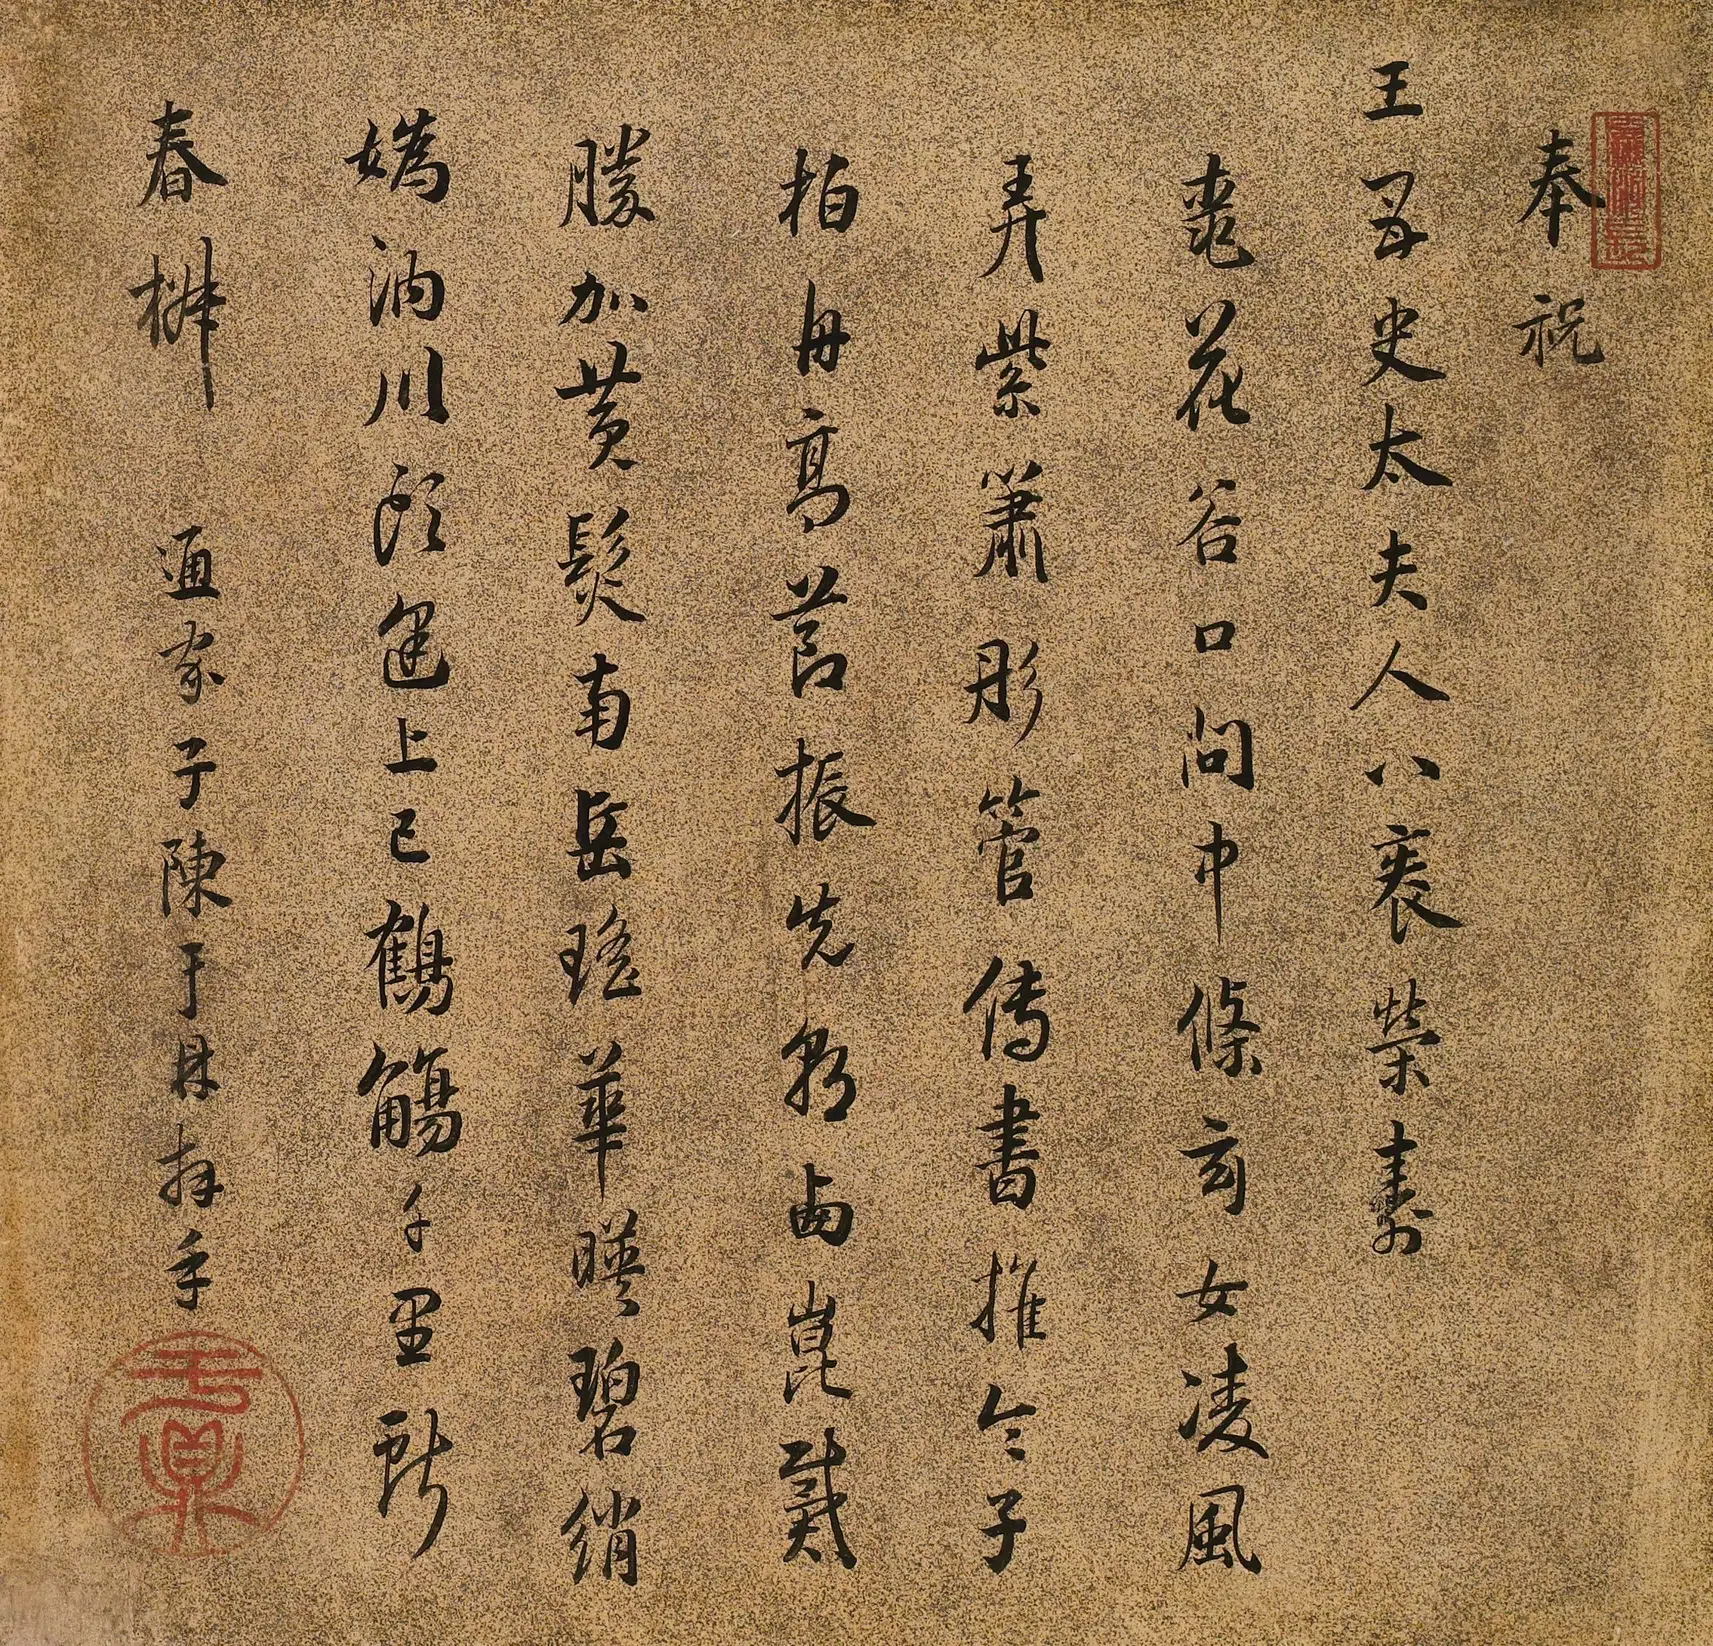 奉祝
王母史太夫人八袠榮壽
棗花谷口問中條玄女凌風
弄紫簫彤管傳書推令子
柏舟高莭振先朝鹵崑戴
勝加黄髮南岳瑤華暎碧綃
嬀汭川頭逢上巳鶴觴千里
春椒 通家子陳于鼎拜手
于鼎